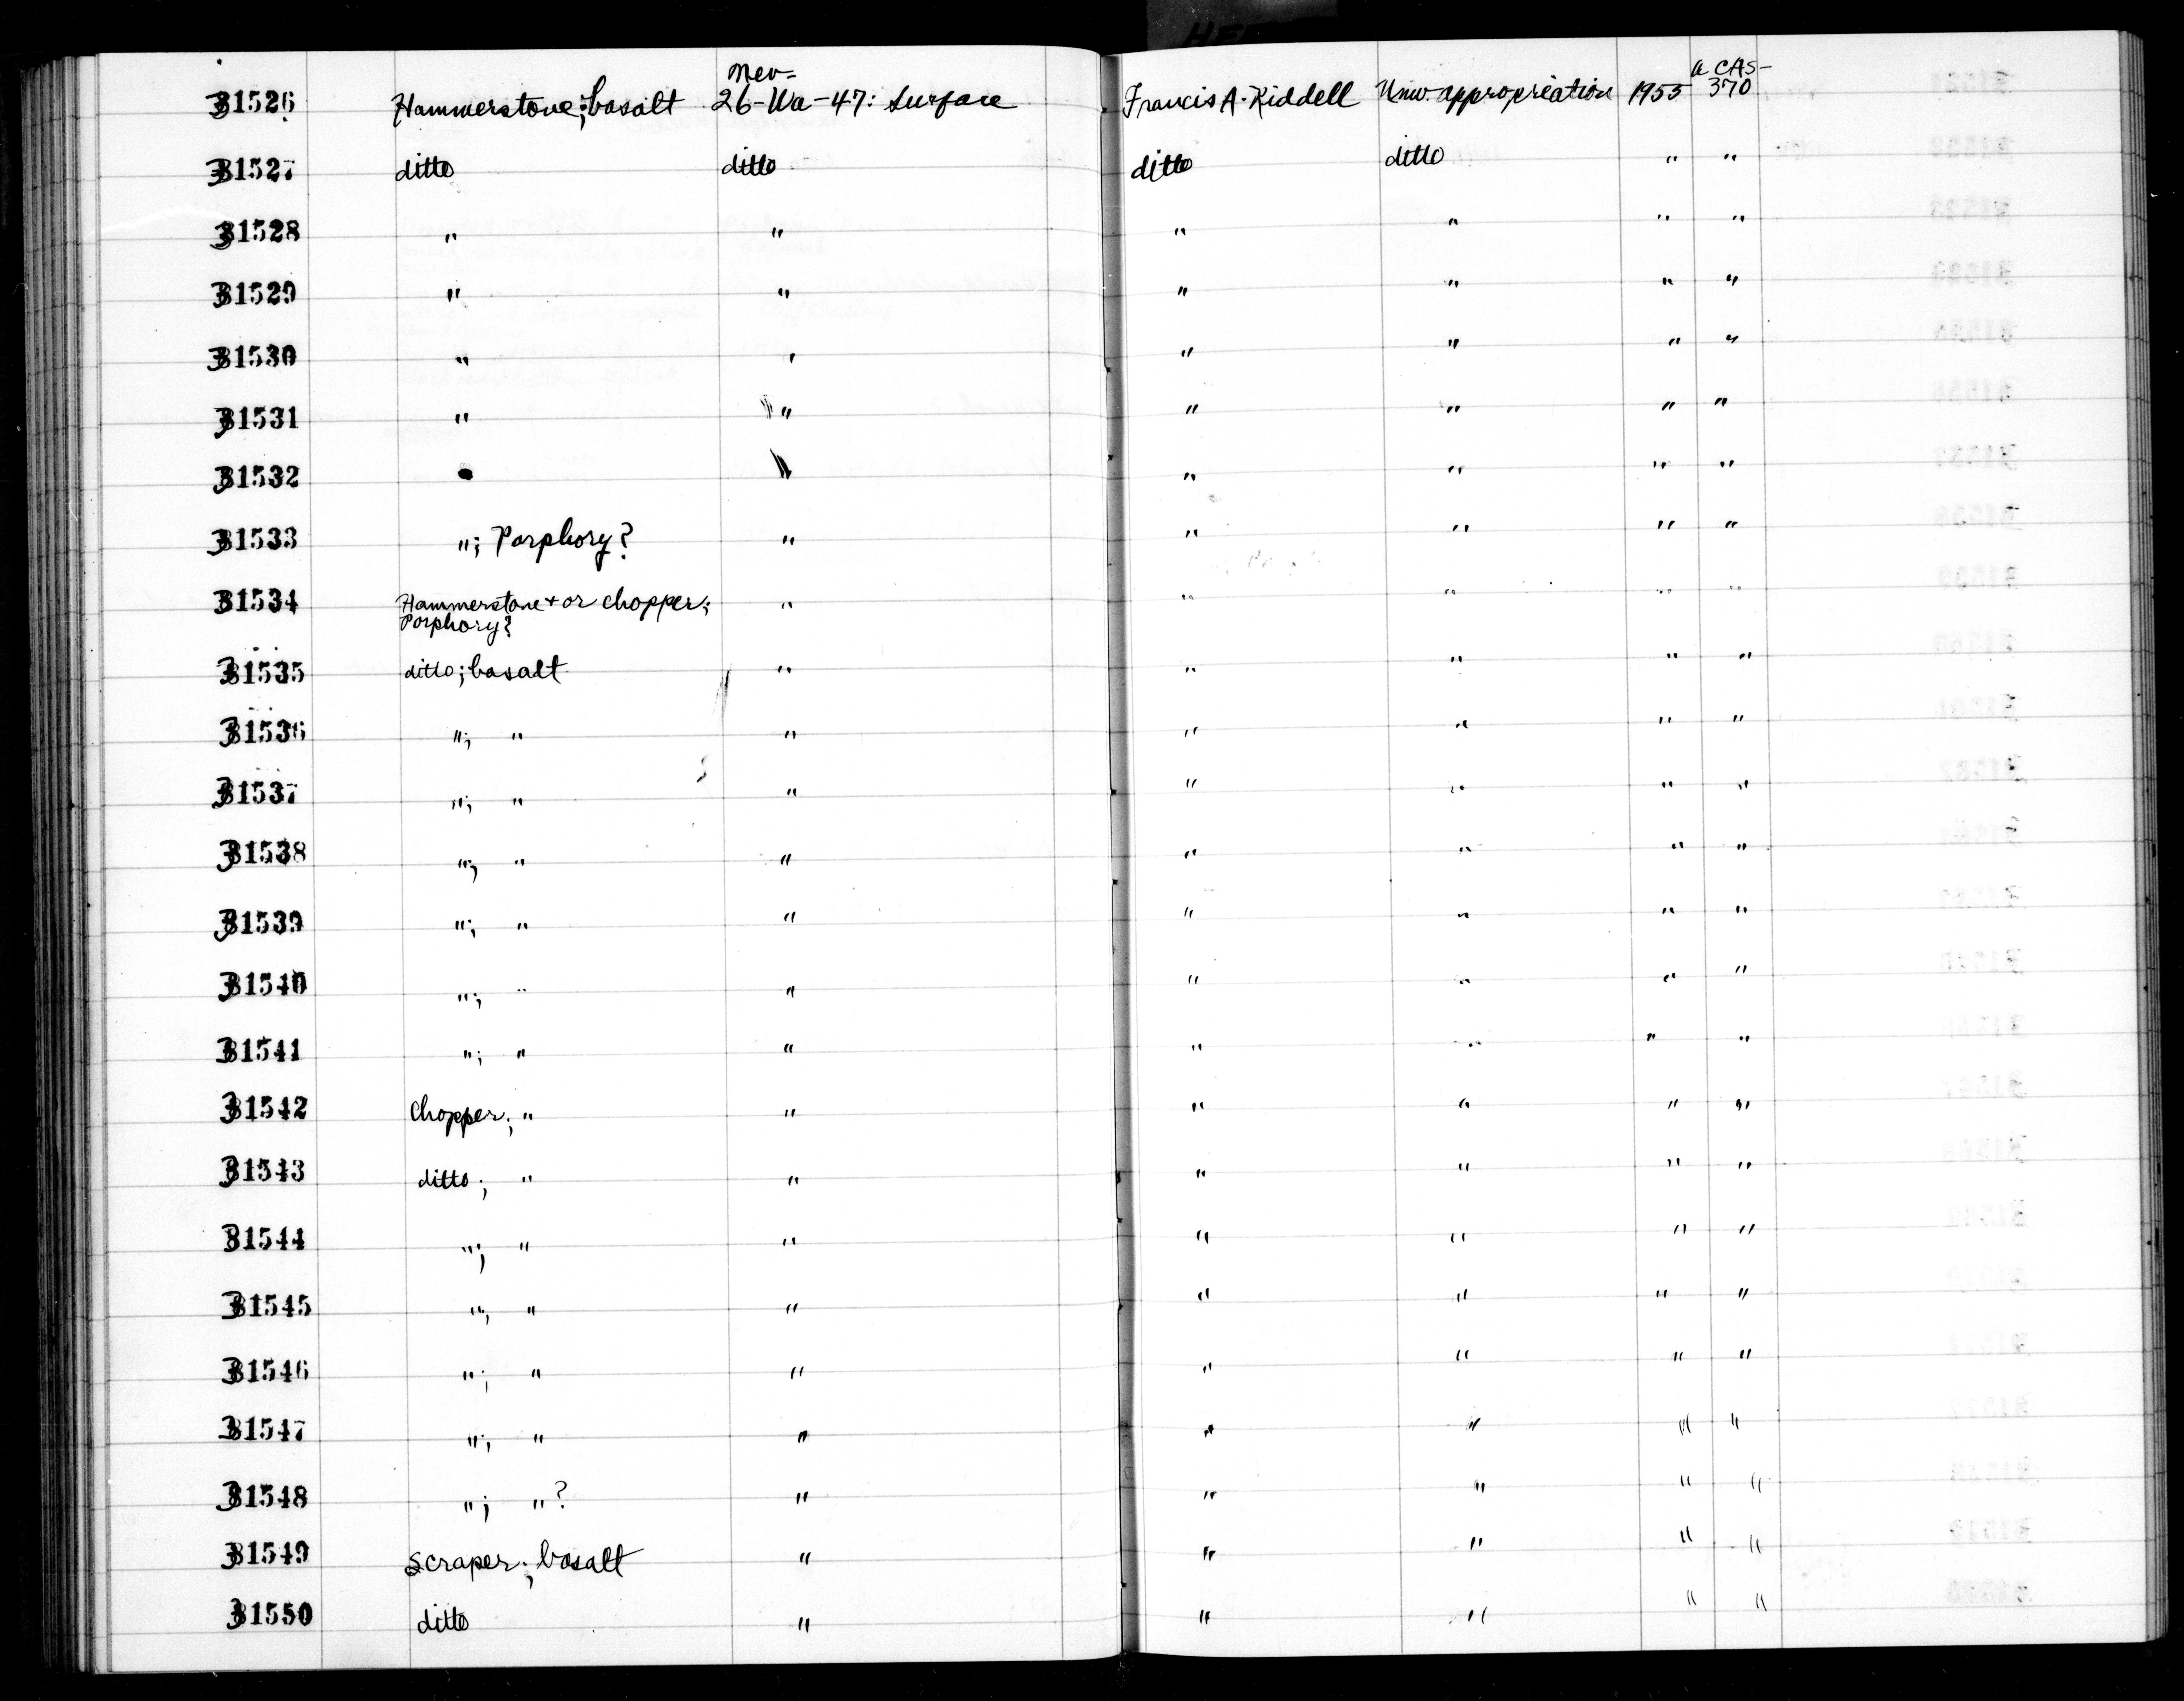 31526 Hammerstone; basalt Nev-26-Wa-47: Surface Francis A. Riddell Univ. appropriation 1955 a CAS-370
31527 ditto ditto ditto ditto " "
31528 " " " " " "
31529 " " " " " "
31530 " " " " " "
31531 " " " " " "
31532 " " " " "
31533 "; Porphory? " " " " "
31534 Hammerstone + or chopper; " " " " "
Porphory?
31535 ditto; basalt " " " " "
31536 "; " " " " " "
31537 "; " " " " " "
31538 "; " " " " " "
31539 "; " " " " " "
31540 "; " " " " " "
31541 "; " " " " " "
31542 Chopper; " " " " " "
31543 ditto; " " " " " "
31544 "; " " " " " "
31545 "; " " " " " "
31546 "; " " " " " "
31547 "; " " " " " "
31548 "; "? " " " " "
31549 Scraper; basalt " " " " "
31550 ditto " " " " "